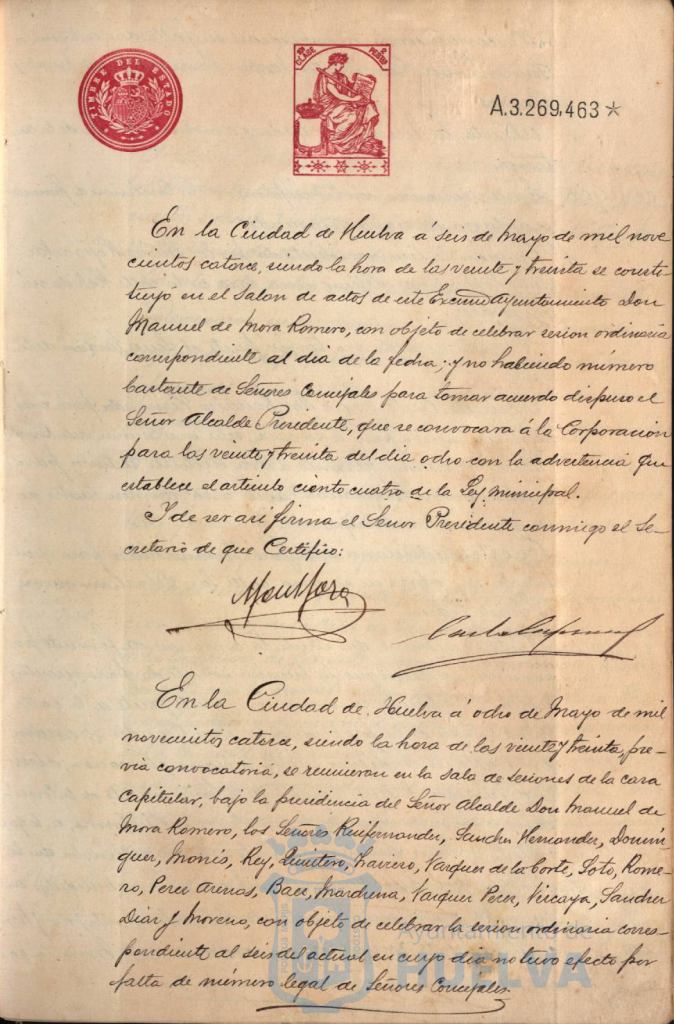 TIMBRE DEL ESTADO
CLASE
A.3.269,463
En la Ciudad de Huelva á seis de Mayo de mil nove
cientos catorce, siendo la hora de las veinte y treinta se consti
tuyó en el Salon de actos de este Excmo Ayuntamiento Don
Manuel de Mora Romero, con objeto de celebrar sesion ordinaria
correspondiente al dia de la fecha; y no habiendo número
bastante de Señores Concejales para tomar acuerdo dispuso el
Señor Alcalde Presidente, que se convocara á la Corporacion
para las veinte y treinta del dia ocho con la advertencia que
establece el articulo ciento cuatro de la Ley municipal.
Y de ser asi firma el Señor Presidente conmigo el Se-
cretario de que Certifico:
Man Mora
En la Ciudad de Huelva á ocho de Mayo de mil
novecientos catorce, siendo la hora de las veinte y treinta, pre-
via convocatoria, se reunieron en la sala de sesiones de la casa
capitular, bajo la presidencia del Señor Alcalde Don Manuel de
Mora Romero, los Señores Ruifernandez, Sanchez Hernandez, Domin-
guez, Monis, Rey, Quintero, Traviero, Vazquez de la Corte, Soto, Rome-
ro, Perez Arenas, Baez, Marchena, Vazquez Perez, Vizcaya, Sanchez
Diaz y Moreno, con objeto de celebrar la sesion ordinaria corres-
pondiente al seis del actual en cuyo dia no tuvo efecto por
falta de número legal de Señores Concejales.
Ayuntamiento de
HUELVA